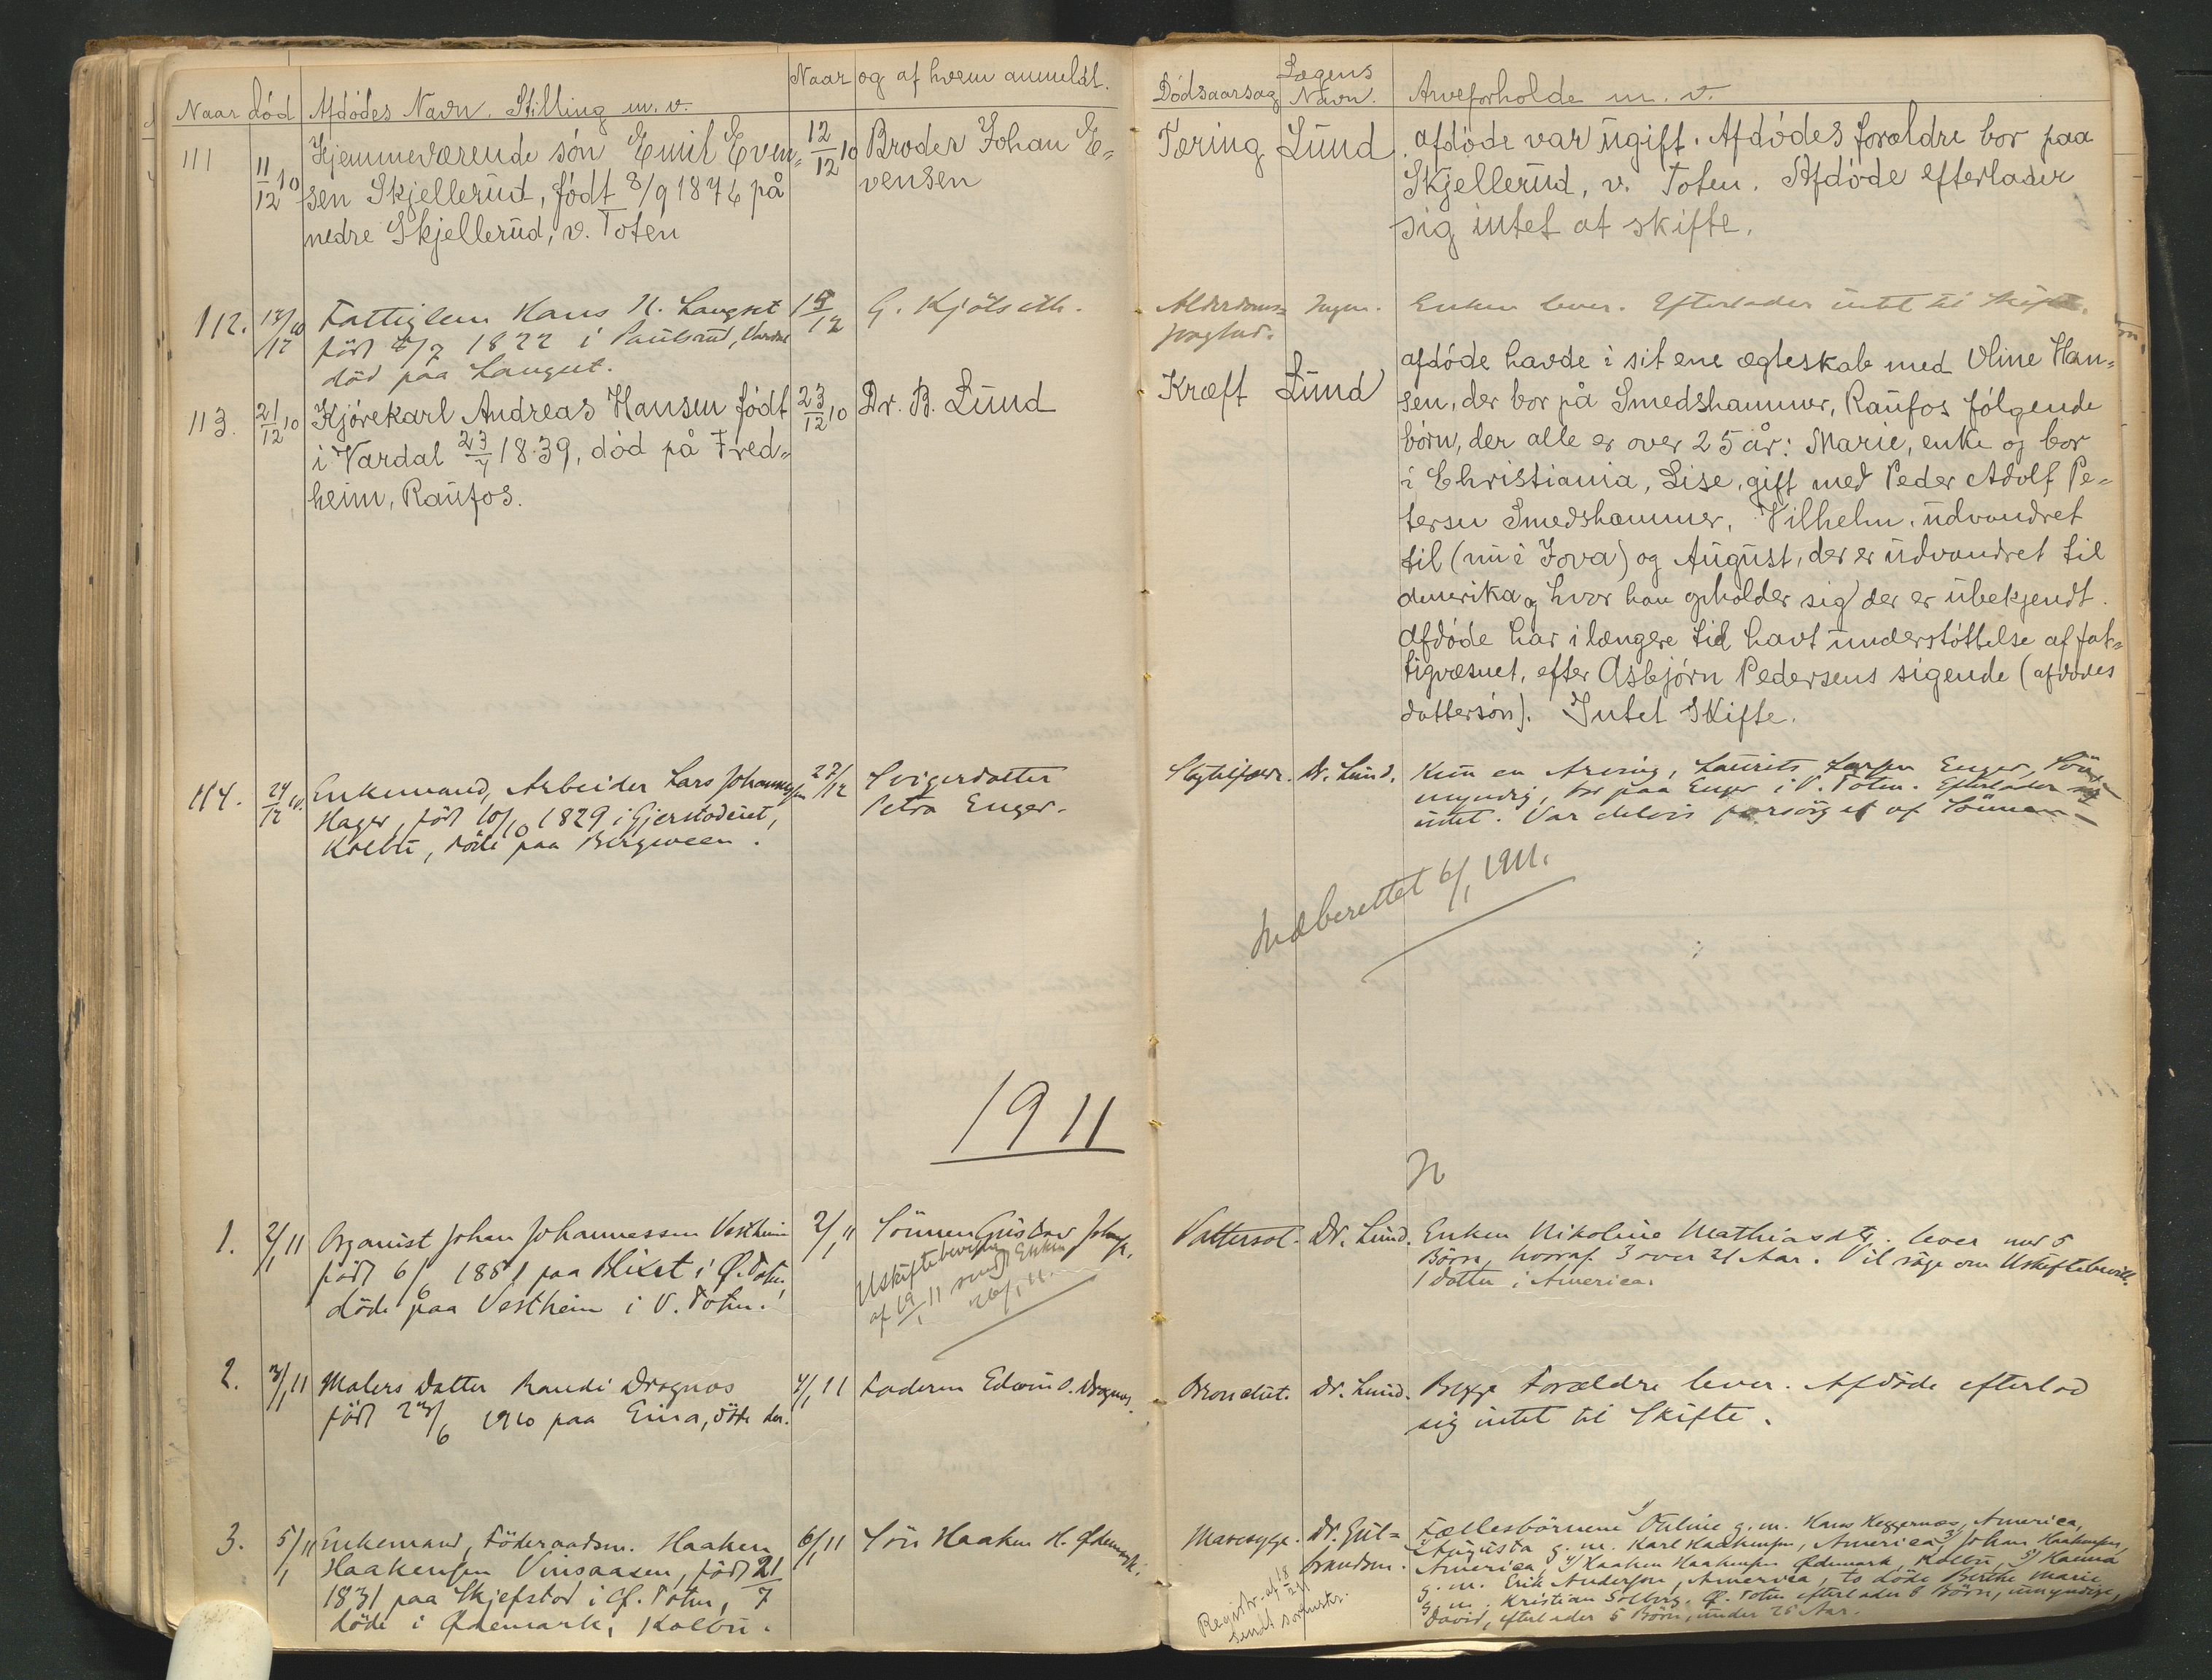 Naar død
Afdødes Navn. Stilling m. v.
Naar og af hvem anmeldt.
Dødsaarsag
Lægens
Navn.
Arveforholde m. v.
111
11/12 10
Hjemmeværende søn Emil Even-
sen Skjellerud, født 8/9 1876 på
nedre Skjellerud, v. Toten
12/12 10
Broder Johan E-
vensen
Tæring
Lund
afdøde var ugift. Afdødes forældre bor paa
Skjellerud, v. Toten. Afdøde efterlader
sig intet at skifte.
112.
Fattiglem Hans H. Langset
født 4/7 1822 i Paulsrud, Vardal
død paa Langset.
G. Kjølseth.
Alderdoms-
svaghed.
Ingen.
Enken lever. Efterlader intet til Skifte.
113.
21/12 10
Kjørekarl Andreas Hansen født
i Vardal 23/7 1839, død på Fred-
heim, Raufos.
23/12 10
Dr. B. Lund
Kræft
Lund
afdøde havde i sit ene ægteskab med Oline Han-
sen, der bor på Smedshammer, Raufos følgende
børn, der alle er over 25 år: Marie, enke og bor
i Christiania, Lise, gift med Peder Adolf Pe-
tersen Smedshammer, Vilhelm, udvandret
til (nu i Jova) og August, der er udvandret til
Amerika og hvor han opholder sig der er ubekjendt.
Afdøde har i længere tid havt understøttelse af fat-
tigvæsnet, efter Asbjørn Pedersens sigende (afdødes
dattersøn). Intet Skifte.
114.
24/12 10.
Enkemand, Arbeider Lars Johannessen
Hager, født 10/10 1829 i Gjerstadeiet,
Kolbu, døde paa Bergsveen.
27/12
Svigerdatter
Petra Enger.
Dr. Lund.
Kun en Arving, Laurits Larsen Enger, Søn,
myndig, bor paa Enger i V. Toten. Efterlader sig
intet. Var delvis forsørget af Sønnen.
Indberettet 6/1 1911.
1911
1.
2/1 11
Organist Johan Johannessen Vestheim
født 6/6 1851 paa Blixet i Ø. Toten,
døde paa Vestheim i V. Toten.
2/1 11
Sønnen Gustav Johans.
Uskiftebevilling
af 19/1 11 sendt Enken
26/1 11.
Vattersot.
Dr. Lund.
Enken Nikoline Mathiasdtr. lever med 5
Børn, hvoraf 3 over 21 Aar. Vil søge om Uskiftebevill.
1 Datter i America.
2.
3/1 11
Malers Datter Randi Dragnos
født 23/6 1910 paa Eina, døde der.
4/1 11
Faderen Edvin O. Dragnos.
Dr. Lund.
Begge Forældre lever. Afdøde efterlod
sig intet til Skifte.
3.
5/1 11
Enkemand, Føderaadsm. Haaken
Haakensen Vinsaasen, født 21/7
1831 paa Skjefstod i Ø. Toten,
døde i Ødemark, Kolbu.
6/1 11
Søn Haaken H. Ødemark.
Marvsyge.
Dr. Gul-
brandsen.
Registr. af 18/2 11
sendt sorenskr.
Fællesbørnene 1) Otilie g. m. Hans Heggernæs, America,
2) Augusta g. m. Karl Haakensen, America, 3) Johan Haakensen,
America, 4) Haaken Haakensen Ødemark, Kolbu, 5) Hanna
g. m. Erik Andersen, America, to døde Berthe Marie
g. m. Kristian Solberg, Ø. Toten efterlader 8 Børn, umyndige,
David, efterlader 5 Børn, under 25 Aar.